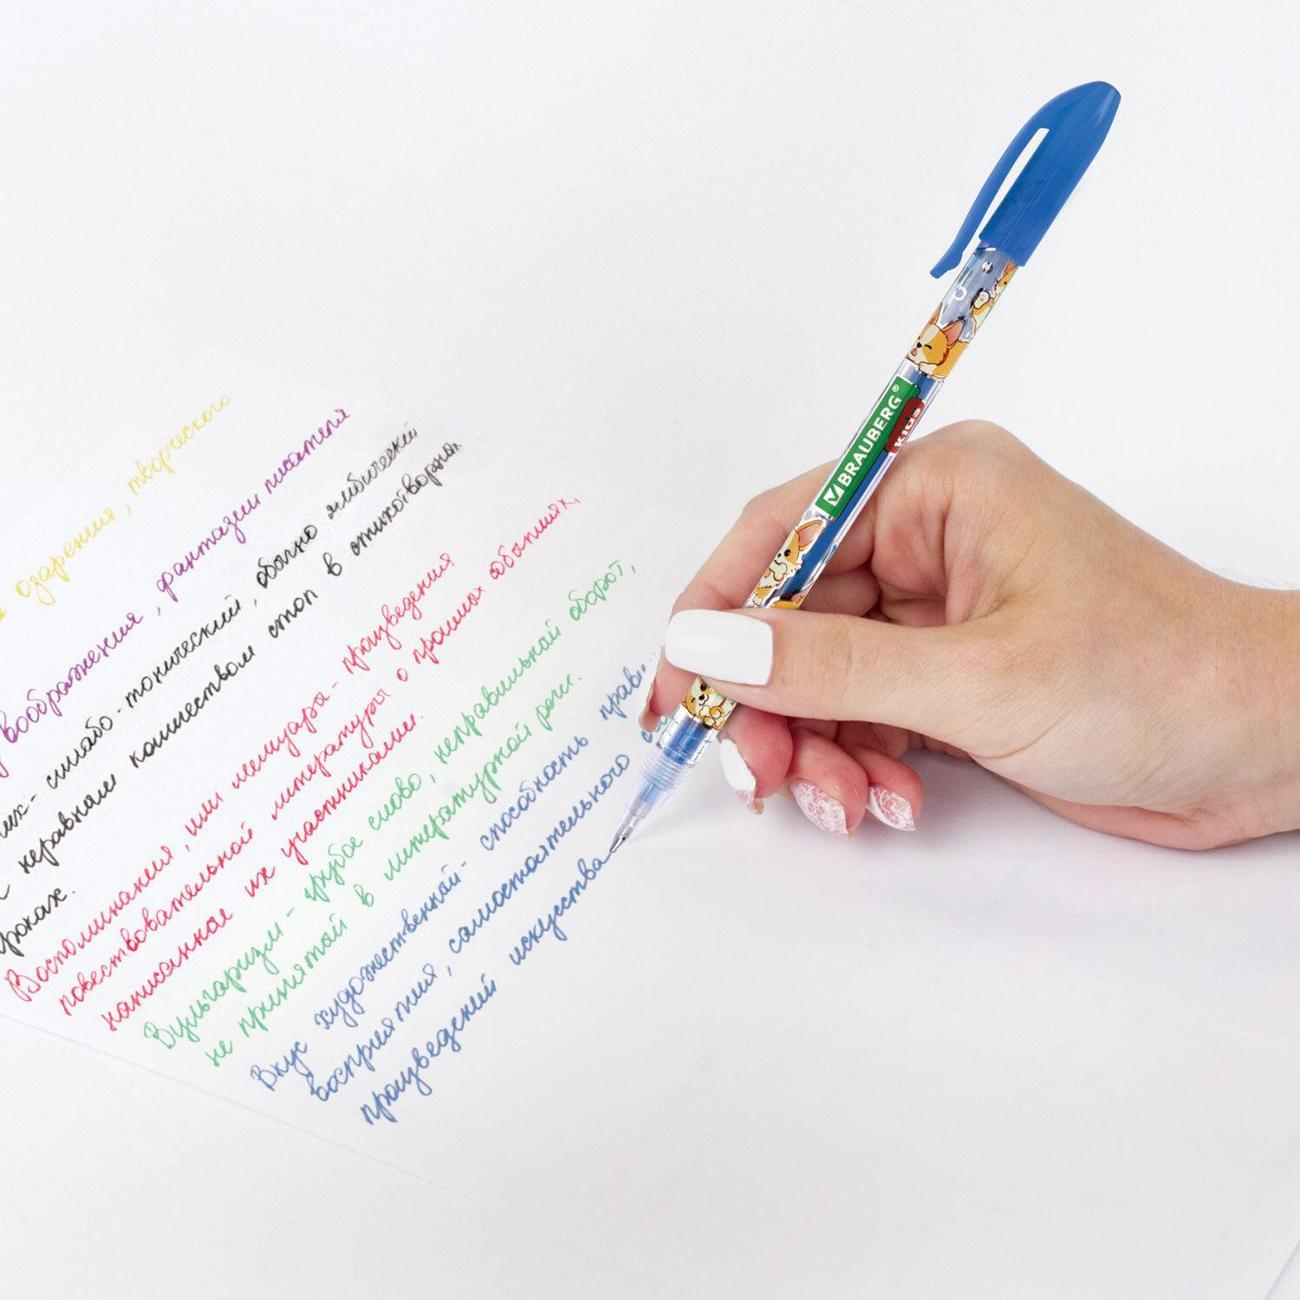 озарения, творческого
воображения, фантазии писателя
них- силлабо-тонический, обычно ямбический
с неравным количеством стоп в стихотворных
строках.
Воспоминания, или мемуары- произведения
повествовательной литературы о прошлых событиях,
написанное их участниками.
Вульгаризм- грубое слово, неправильный оборот,
не принятый в литературной речи.
Вкус художественный- способность прави
восприятия, самостоятельного
произведений искусства
BRAUBERG®
KIDS